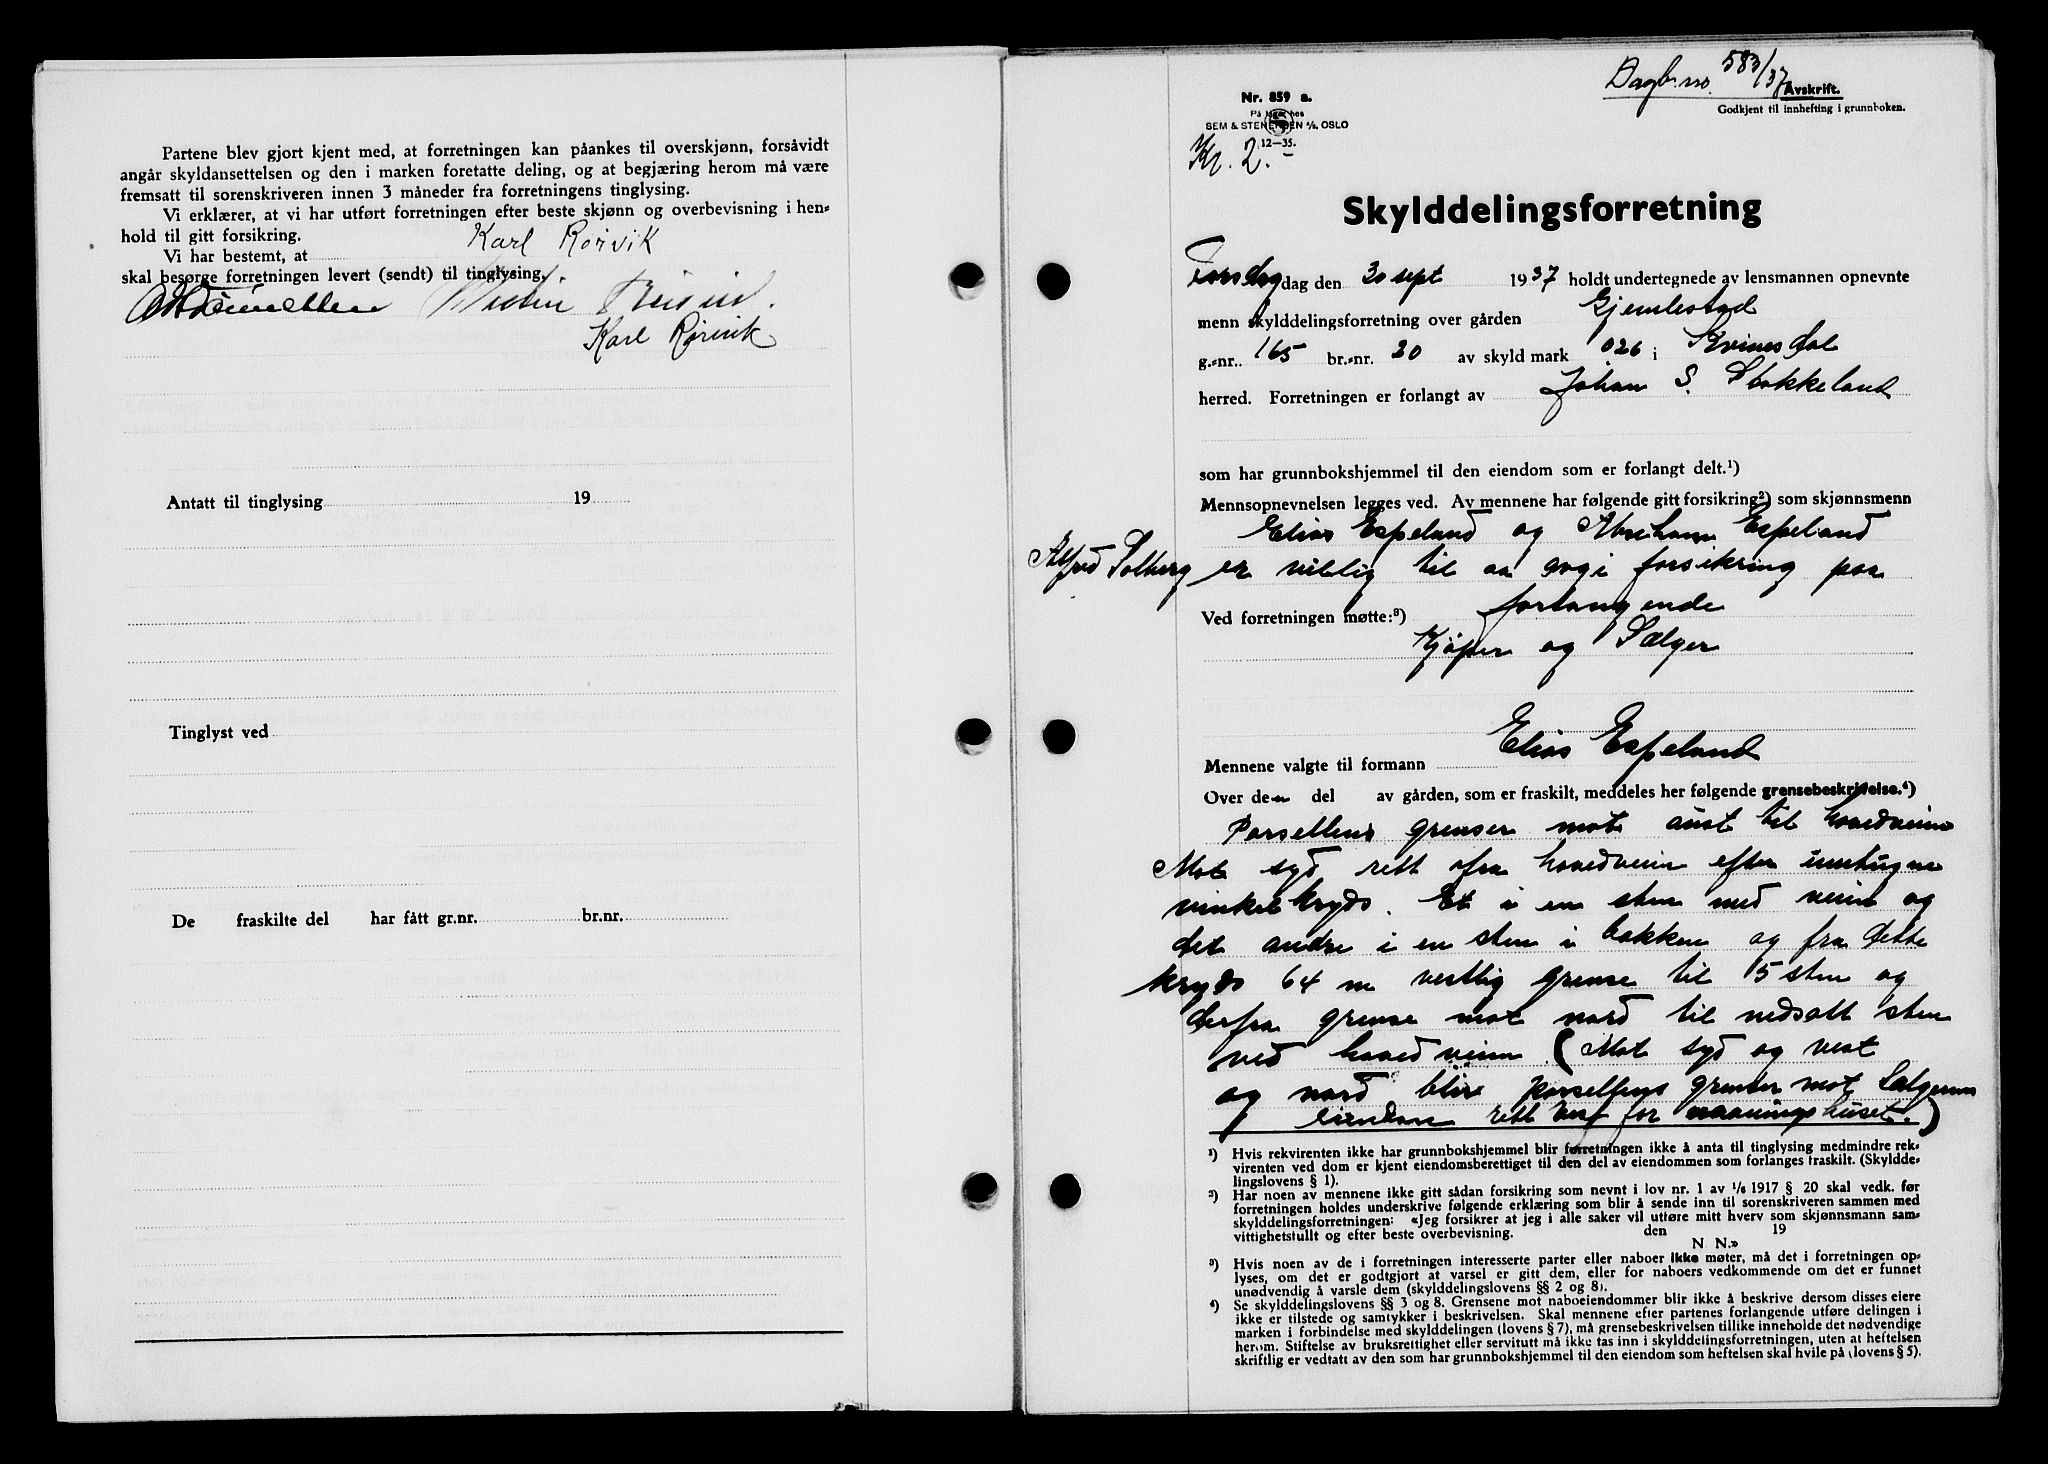 Partene blev gjort kjent med, at forretningen kan påankes til overskjønn, forsåvidt
angår skyldansettelsen og den i marken foretatte deling, og at begjæring herom må være
fremsatt til sorenskriveren innen 3 måneder fra forretningens tinglysing.
Vi erklærer, at vi har utført forretningen efter beste skjønn og overbevisning i hen-
hold til gitt forsikring.
Karl Rørvik
Vi har bestemt, at
skal besørge forretningen levert (sendt) til tinglysing.
Karl Rørvik
Antatt til tinglysing 19
Tinglyst ved
De fraskilte del har fått gr.nr. br.nr.
Dagb. no. 583/37
Avskrift.
Godkjent til innhefting i grunnboken.
Nr. 859 a.
På lager hos
SEM & STENERSEN A/S, OSLO
12-35.
Kr. 2.-
Skylddelingsforretning
Torsdag dag den 30 sept 1937 holdt undertegnede av lensmannen opnevnte
menn skylddelingsforretning over gården Gjemlestad
g.-nr. 165 br.-nr. 20 av skyld mark 026 i Kvinesdal
herred. Forretningen er forlangt av Johan S. Stokkeland
som har grunnbokshjemmel til den eiendom som er forlangt delt.¹)
Mennsopnevnelsen legges ved. Av mennene har følgende gitt forsikring²) som skjønnsmenn
Elias Espeland og Abraham Espeland
Alfred Solberg er villig til aa avgi forsikring paa
forlangende
Ved forretningen møtte:³)
Kjøper og Sælger
Mennene valgte til formann Elias Espeland
Over den del av gården, som er fraskilt, meddeles her følgende grensebeskrivelse.⁴)
Parsellens grenser mot aust til hovedveien
Mot syd rett ofra hovedveien efter innhugne
vinkelkryds. Et i en sten ved veien og
det andre i en sten i bakken og fra dette
kryds 64 m vestlig grense til 5 sten og
derfra grense mot nord til nedsatt sten
ved hovedveien. (Mot syd og vest
og nord blir parsellens grenser mot Sælgerens
eiendom rett for vaaningshuset.)
¹) Hvis rekvirenten ikke har grunnbokshjemmel blir forretningen ikke å anta til tinglysing medmindre rek-
virenten ved dom er kjent eiendomsberettiget til den del av eiendommen som forlanges fraskilt. (Skyldde-
lingslovens § 1).
²) Har noen av mennene ikke gitt sådan forsikring som nevnt i lov nr. 1 av 1/6 1917 § 20 skal vedk. før
forretningen holdes underskrive følgende erklæring som blir å sende inn til sorenskriveren sammen med
skylddelingsforretningen: «Jeg forsikrer at jeg i alle saker vil utføre mitt hverv som skjønnsmann sam-
vittighetsfullt og efter beste overbevisning. den 19
N N.»
³) Hvis noen av de i forretningen interesserte parter eller naboer ikke møter, må det i forretningen op-
lyses, om det er godtgjort at varsel er gitt dem, eller for naboers vedkommende om det er funnet
unødvendig å varsle dem (skylddelingslovens §§ 2 og 8).
⁴) Se skylddelingslovens §§ 3 og 8. Grensene mot naboeiendommer blir ikke å beskrive dersom disses eiere
ikke er tilstede og samtykker i beskrivelsen. Skal mennene efter partenes forlangende utføre delingen i
marken i forbindelse med skylddelingen (lovens § 7), må grensebeskrivelsen tillike inneholde det nødvendige
herom. Stiftelse av bruksrettighet eller servitutt må ikke tas inn i skylddelingsforretningen, uten at heftelsen
skriftlig er vedtatt av den som har grunnbokshjemmel til den eiendom som heftelsen skal hvile på (lovens § 5).